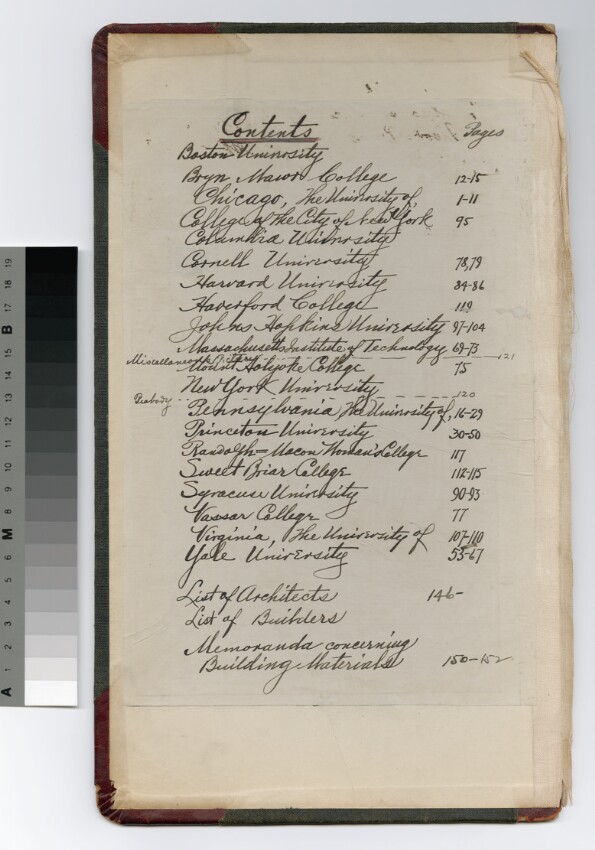 Contents Pages
Boston University
Bryn Mawr College 12-15
Chicago, The University of, 1-11
College of the City of New York 95
Columbia University
Cornell University 78,79
Harvard University 84-86
Haverford College 119
Johns Hopkins University 97-104
Massachusetts Institute of Technology 69-73
Miscellaneous 121
Mount Holyoke College 75
New York University
Peabody 120
Pennsylvania The University of, 16-29
Princeton University 30-50
Randolph=Macon Woman's College 117
Sweet Briar College 112-115
Syracuse University 90-93
Vassar College 77
Virginia, The University of 107-110
Yale University 53-67
List of Architects 146-
List of Builders
Memoranda concerning
Building Materials 150-152
A 1 2 3 4 5 6 M 8 9 10 11 12 13 14 15 B 17 18 19